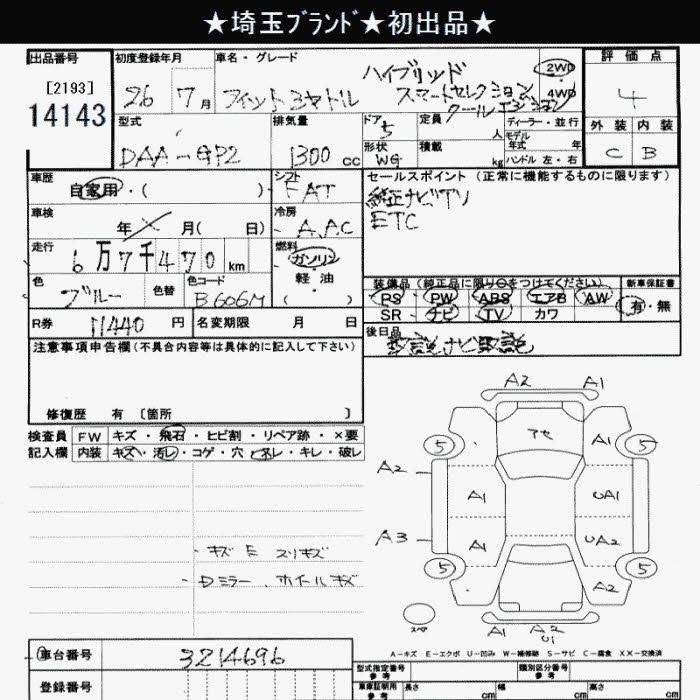 ★埼玉ﾌﾞﾗﾝﾄﾞ★初出品★
出品番号 初度登録年月 車名・グレード 評価点
[2193]
14143
26 7月 フィット3ヤトル ハイブリッド スマートセレクション クールエディション 2WD 4WD 4
型式 排気量 ドア 定員 人 ディーラー・並行 外装 内装
DAA-GP2 1300cc 5 モデル年式 年
形状 WG 積載 kg ハンドル 左・右 C B
車歴 自家用・( ) シフト FAT セールスポイント (正常に機能するものに限ります)
純正ナビTV
ETC
車検 年 月( 日) 冷房 A.AC
走行 6万7千470km 燃料 ガソリン 軽油 ( )
色 ブルー 色替 色コード B606M
装備品 (純正品に限り○をつけてください) 新車保証書
PS PW ABS エアB AW 有・無
SR ナビ TV カワ
R券 11440円 名変期限 月 日 後日品
取説ナビ取説
注意事項申告欄(不具合内容等は具体的に記入して下さい)
修復歴 有 〔箇所 〕
検査員 FW キズ・飛石・ヒビ割・リペア跡・×要
記入欄 内装 キズ・汚レ・コゲ・穴・スレ・キレ・破レ
A2 A1
アセ
5 A1 5
A2 A1 UA1
A3 A1 UA2
5 A2 5
スペア A1 A2 U1
・キズ E スリキズ
・Dミラー.ホイールキズ
A-キズ E-エクボ U-凹み W-補修跡 S-サビ C-腐食 XX-交換済
車台番号 3214696
型式指定番号 参考 類別区分番号 参考
登録番号
車庫証明用 参考 長さ cm 幅 cm 高さ cm